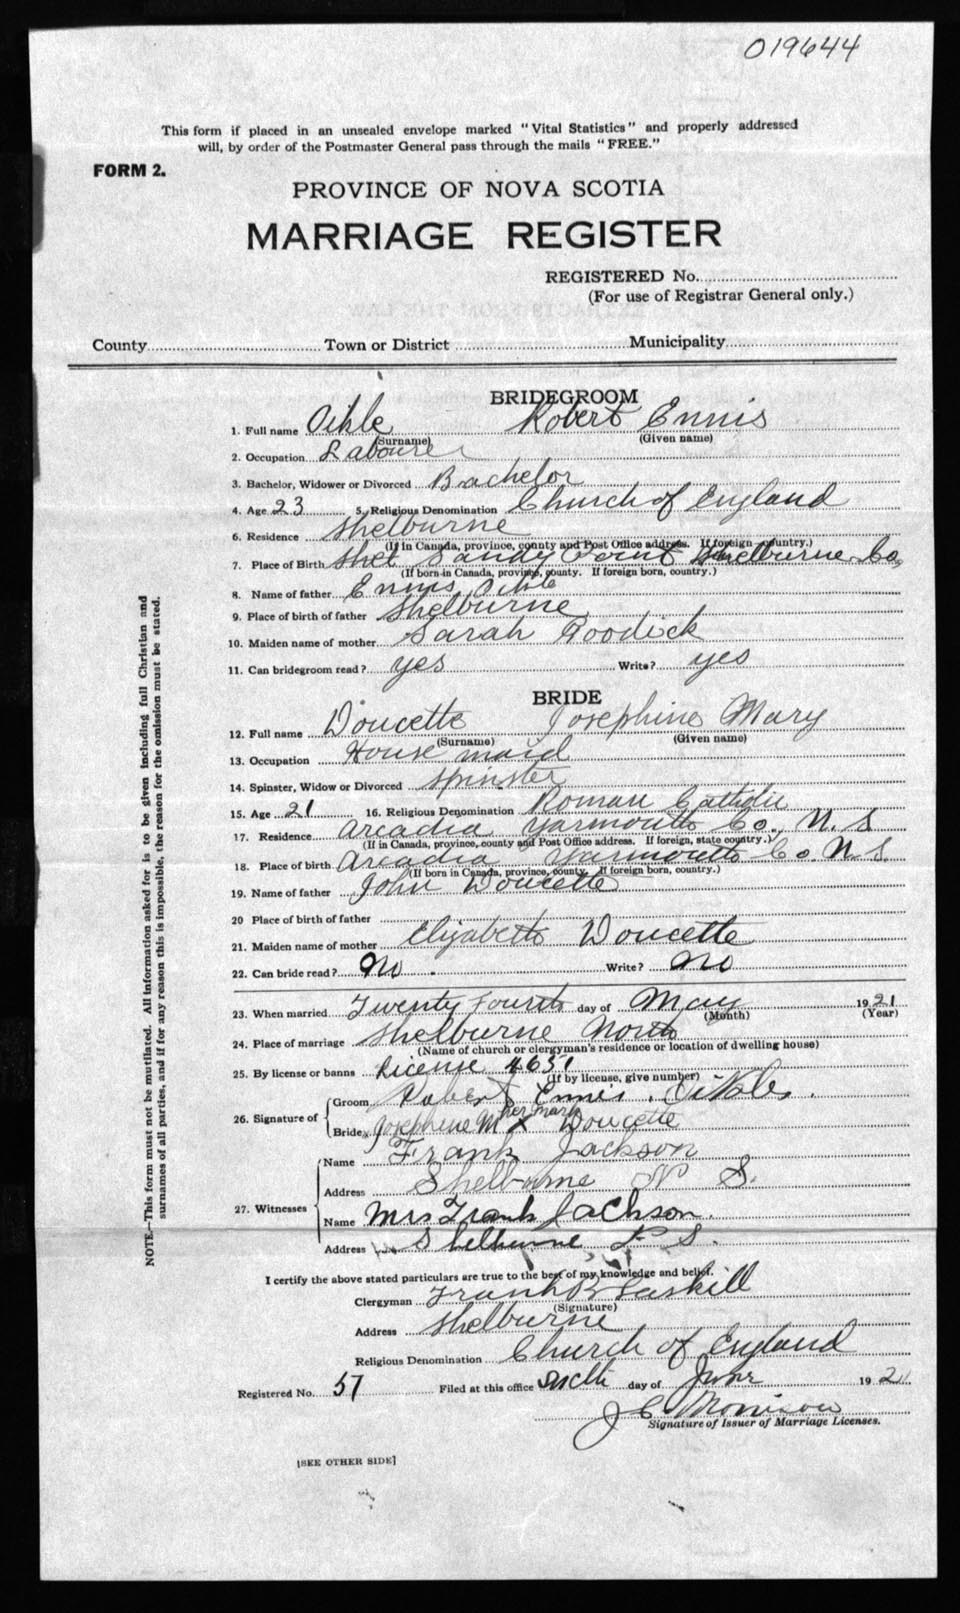 019644
This form if placed in an unsealed envelope marked "Vital Statistics" and properly addressed
will, by order of the Postmaster General pass through the mails "FREE."
FORM 2.
PROVINCE OF NOVA SCOTIA
MARRIAGE REGISTER
REGISTERED No.
(For use of Registrar General only.)
County Town or District Municipality
BRIDEGROOM
1. Full name Oihle Robert Ennis
(Surname) (Given name)
2. Occupation Labourer
3. Bachelor, Widower or Divorced Bachelor
4. Age 23 5. Religious Denomination Church of England
6. Residence Shelburne
(If in Canada, province, county and Post Office address. If foreign country.)
7. Place of Birth Shel Sandy Point Shelburne Co.
(If born in Canada, province, county. If foreign born, country.)
8. Name of father Ennis Oihle
9. Place of birth of father Shelburne
10. Maiden name of mother Sarah Goodick
11. Can bridegroom read? yes Write? yes
BRIDE
12. Full name Doucette Josephine Mary
(Surname) (Given name)
13. Occupation House maid
14. Spinster, Widow or Divorced Spinster
15. Age 21 16. Religious Denomination Roman Catholic
17. Residence Arcadia Yarmouth Co., N. S
(If in Canada, province, county and Post Office address. If foreign, state country.)
18. Place of birth Arcadia Yarmouth Co. N S.
(If born in Canada, province, county. If foreign born, country.)
19. Name of father John Doucette
20 Place of birth of father
21. Maiden name of mother Elizabeth Doucette
22. Can bride read? No. Write? No
23. When married Twenty Fourth day of May 1921
(Month) (Year)
24. Place of marriage Shelburne North
(Name of church or clergyman's residence or location of dwelling house)
25. By license or banns License 4651
(If by license, give number)
26. Signature of Groom Robert Ennis
Bride Josephine M her mark X Doucette
27. Witnesses Name Frank Jackson
Address Shelburne N S.
Name Mrs Frank Jackson.
Address Shelburne N S.
I certify the above stated particulars are true to the best of my knowledge and belief.
Clergyman Frank B Gaskill
(Signature)
Address Shelburne
Religious Denomination Church of England
Registered No. 57 Filed at this office day of June 1921
J C Morrison
Signature of Issuer of Marriage Licenses.
[SEE OTHER SIDE]
NOTE—This form must not be mutilated. All information asked for is to be given including full Christian and
surnames of all parties, and if for any reason this is impossible, the reason for the omission must be stated.